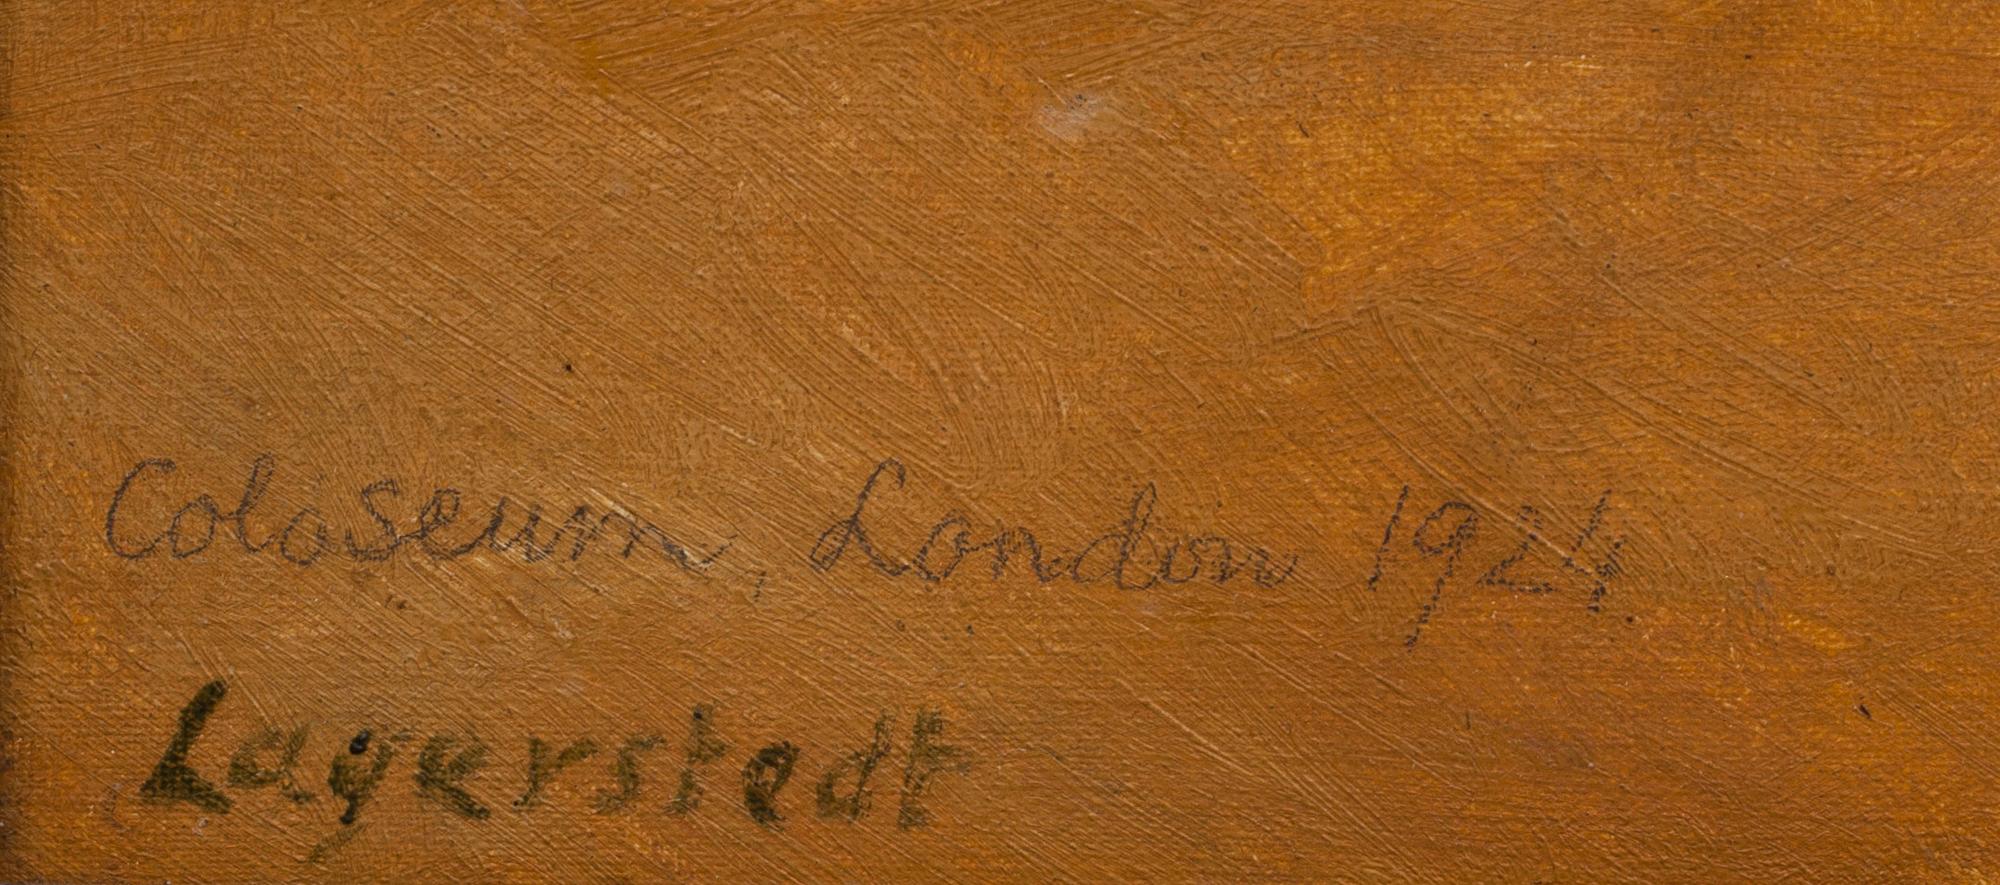 Coloseum, London 1924.
Lagerstedt